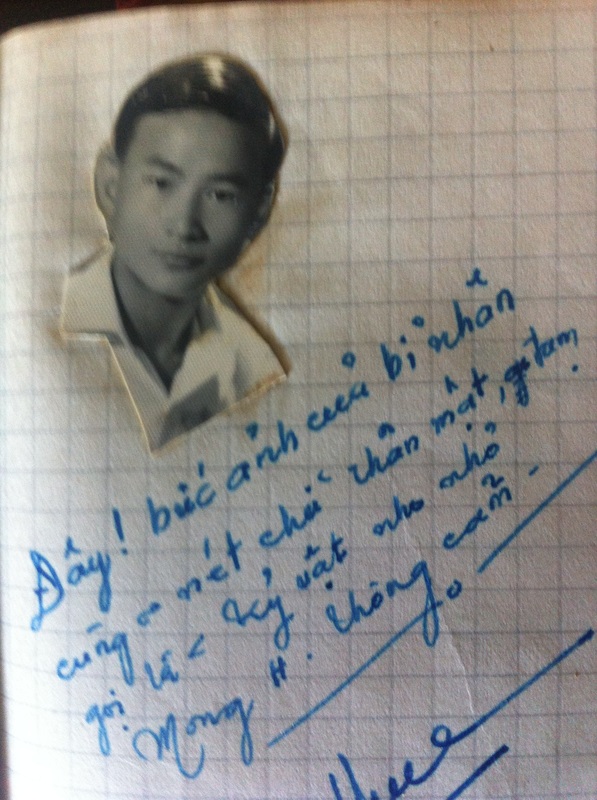 Đây! bức ảnh của bị nhân
cùng nét chữ thân mật, tạm
gọi là kỷ vật nho nhỏ
Mong H. thông cảm.